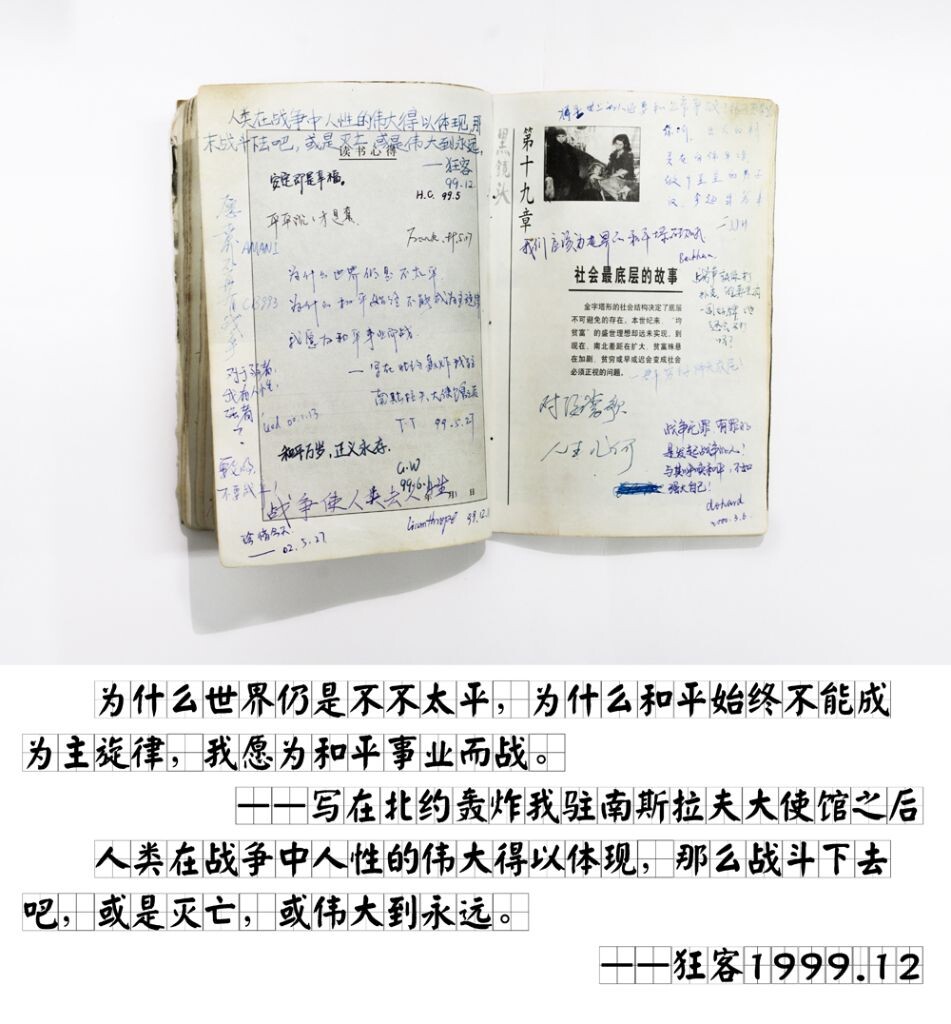 人类在战争中人性的伟大得以体现,那
末战斗下去吧,或是灭亡,或是伟大到永远,
读书心得
——狂客
99.12.
安定即是幸福。
H.C. 99.5
平平淡淡才是真
Frank. 99.5.27
AMANI
为什么世界仍是不太平
为什么和平始终不能成为主旋律
我愿为和平事业而战
——写在北约轰炸我驻
南斯拉夫大使馆之后
T.T 99.5.27
对于弱者,
我有人性,
强者
?
God 00.1.13
和平万岁,正义永存.
G.W
99.6.1
年 月 日
要和好,
不要战争!
战争使人类去人生
珍惜今天
—— 02.5.27
99.12.1
黑镜头
第十九章
我们应该为世界的和平
Beckham
社会最底层的故事
金字塔形的社会结构决定了底层
不可避免的存在。本世纪来,“均
贫富”的盛世理想却远未实现。到
现在,南北差距在扩大,贫富殊悬
在加剧,贫穷或早或迟会变成社会
必须正视的问题。
对酒当歌
人生几何
战争无罪 有罪的
是发起战争的人!
与其呼唤和平,不如
强大自己!
2000.3.6.
为什么世界仍是不不太平,为什么和平始终不能成
为主旋律,我愿为和平事业而战。
——写在北约轰炸我驻南斯拉夫大使馆之后
人类在战争中人性的伟大得以体现,那么战斗下去
吧,或是灭亡,或伟大到永远。
——狂客1999.12